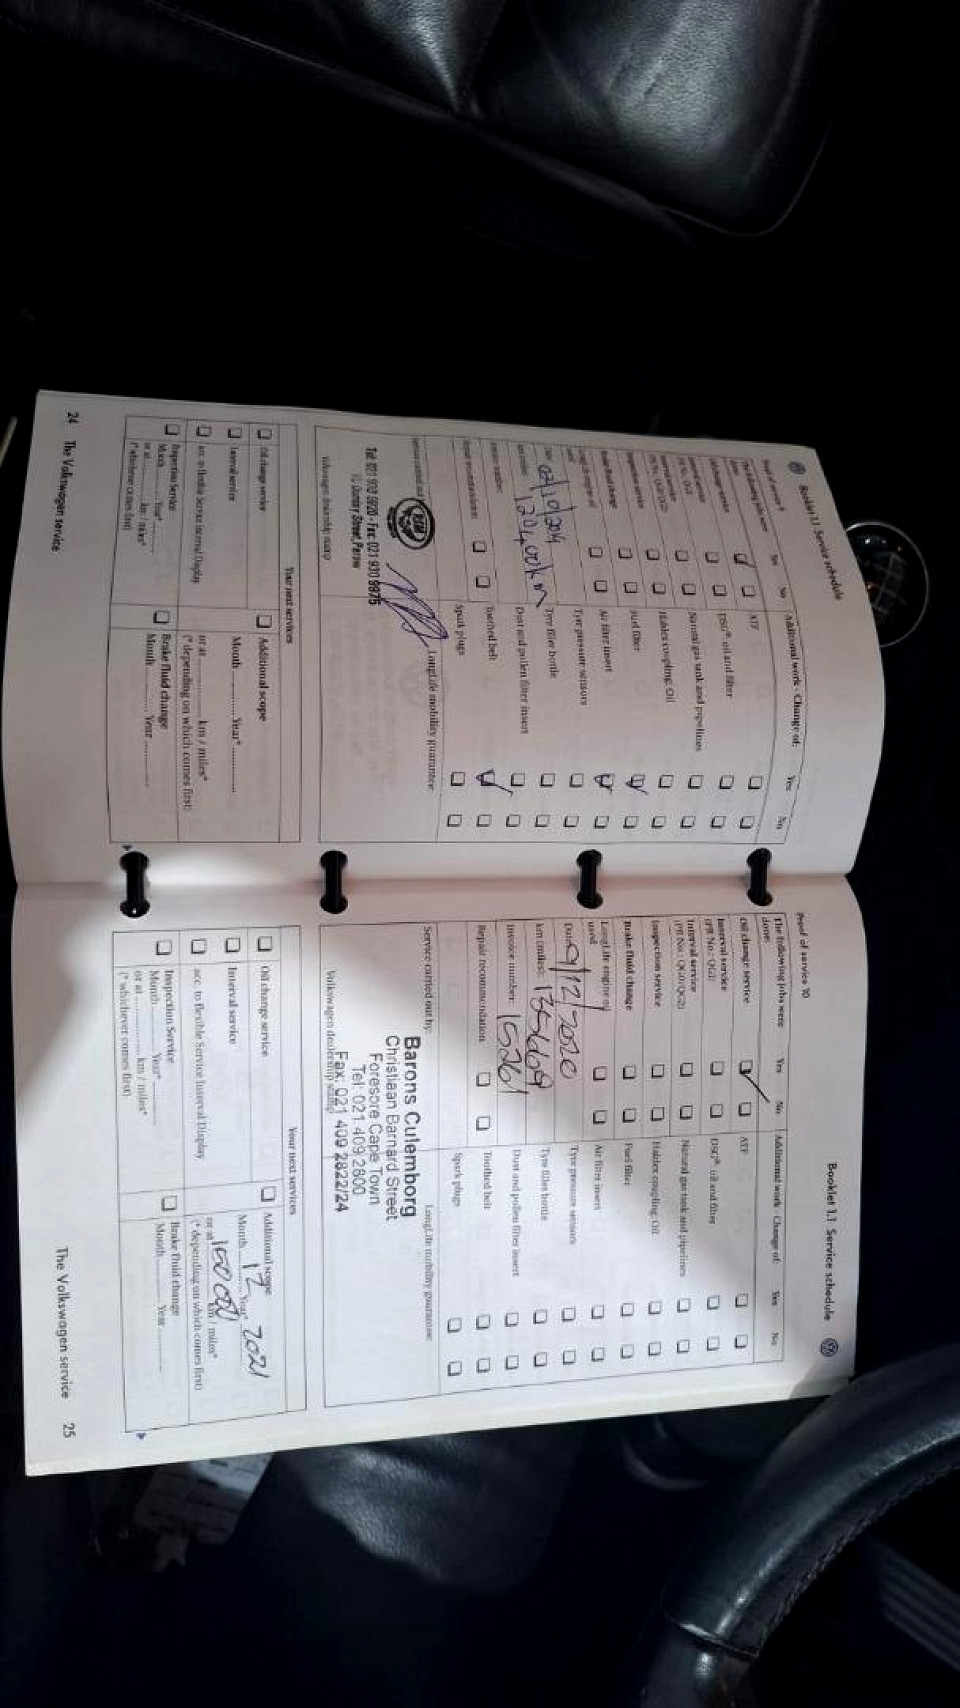 Booklet 1.1 Service schedule
Proof of service 9
The following jobs were done:
Yes
No
Additional work - Change of:
Yes
No
Oil change service
ATF
Interval service
DSG® oil and filter
Interval service
Natural gas tank and pipelines
Inspection service
Haldex coupling: Oil
Brake fluid change
Fuel filter
Air filter insert
Tyre pressure sensors
Tyre filler bottle
120400km
Dust and pollen filter insert
Toothed belt
Spark plugs
LongLife mobility guarantee:
Tel: 021 930 9920 - Fax: 021 930 9975
Volkswagen dealership stamp
Your next services
Oil change service
Additional scope
Interval service
Month Year*
acc. to flexible Service Interval Display
or at km / miles*
(* depending on which comes first)
Inspection Service
Brake fluid change
Month Year*
Month Year
or at km / miles*
(* whichever comes first)
24 The Volkswagen service
Booklet 1.1 Service schedule
Proof of service 10
The following jobs were done:
Yes
No
Additional work - Change of:
Yes
No
Oil change service
ATF
Interval service
(PR No.: QG1)
DSG® oil and filter
Interval service
(PR No.: QG0/QG2)
Natural gas tank and pipelines
Inspection service
Haldex coupling: Oil
Brake fluid change
Fuel filter
LongLife engine oil used
Air filter insert
Date: 9/12/2020
Tyre pressure sensors
km (miles):
Tyre filler bottle
Invoice number: 15261
Dust and pollen filter insert
Repair recommendation
Toothed belt
Spark plugs
Service carried out by:
LongLife mobility guarantee:
Barons Culemborg
Christiaan Barnard Street
Foresore Cape Town
Tel: 021 409 2800
Fax: 021 409 2822/24
Volkswagen dealership stamp
Your next services
Oil change service
Additional scope
Interval service
Month 12 Year* 2021
acc. to flexible Service Interval Display
or at 150 000 km / miles*
(* depending on which comes first)
Inspection Service
Brake fluid change
Month Year*
Month Year
or at km / miles*
(* whichever comes first)
The Volkswagen service 25